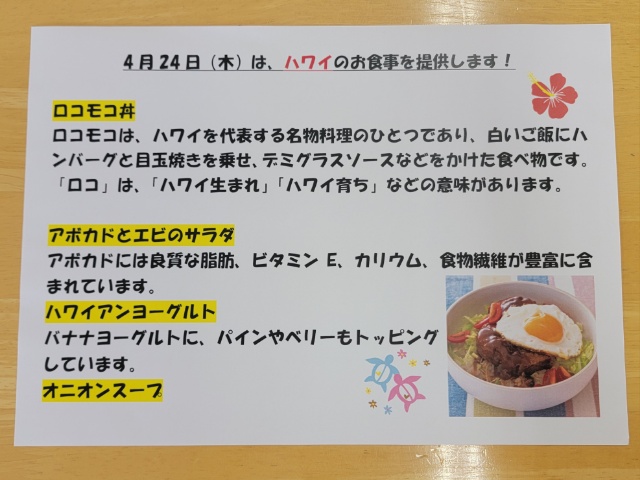 4月24日（木）は、ハワイのお食事を提供します！
ロコモコ丼
ロコモコは、ハワイを代表する名物料理のひとつであり、白いご飯にハ
ンバーグと目玉焼きを乗せ、デミグラスソースなどをかけた食べ物です。
「ロコ」は、「ハワイ生まれ」「ハワイ育ち」などの意味があります。
アボカドとエビのサラダ
アボカドには良質な脂肪、ビタミン E、カリウム、食物繊維が豊富に含
まれています。
ハワイアンヨーグルト
バナナヨーグルトに、パインやベリーもトッピング
しています。
オニオンスープ